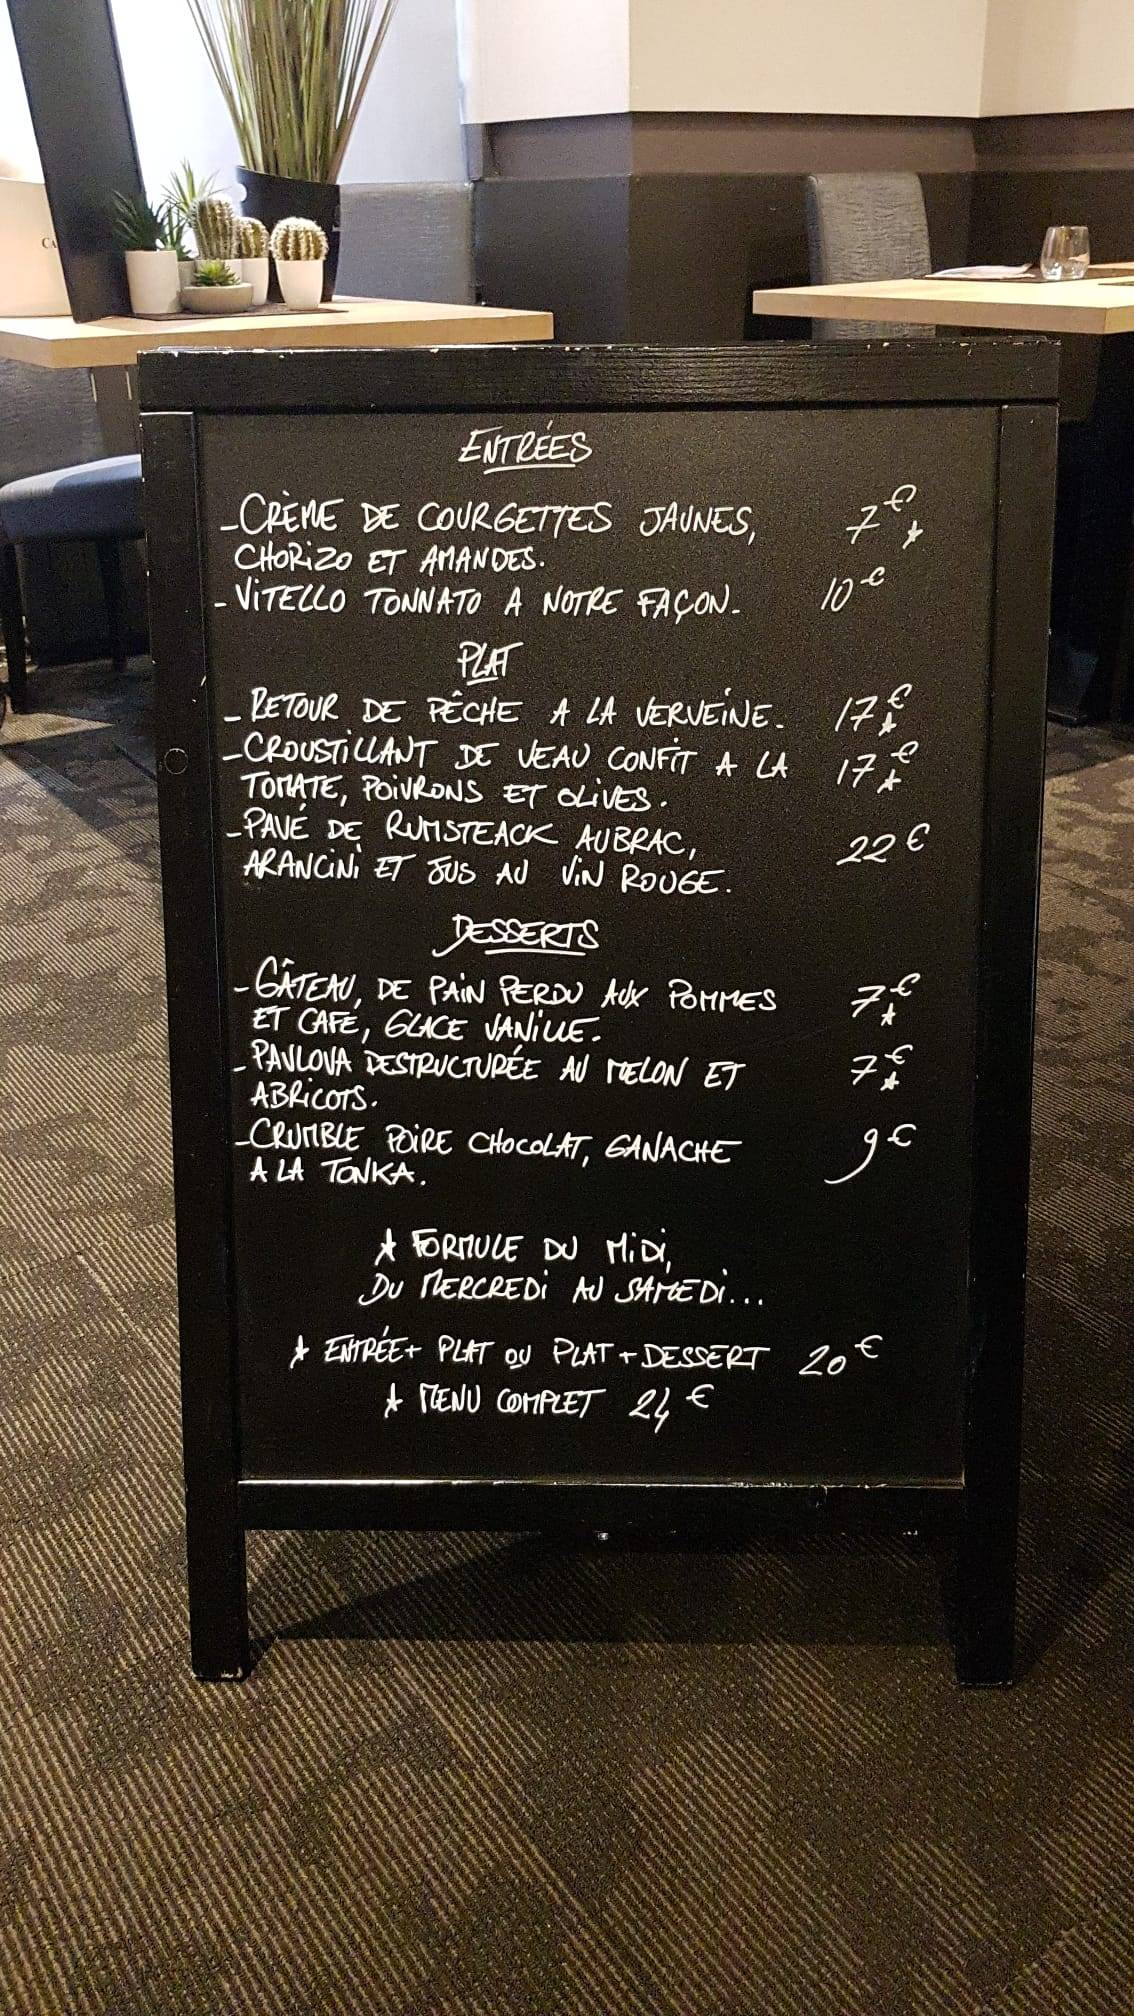 CA
ENTRÉES
-CRÈME DE COURGETTES JAUNES, 7€★
CHORIZO ET AMANDES.
-VITELLO TONNATO A NOTRE FAÇON. 10€
PLAT
-RETOUR DE PÊCHE A LA VERVEINE. 17€★
-CROUSTILLANT DE VEAU CONFIT A LA 17€★
TOMATE, POIVRONS ET OLIVES.
-PAVÉ DE RUMSTEACK AUBRAC, 22€
ARANCINI ET JUS AU VIN ROUGE.
DESSERTS
-GÂTEAU, DE PAIN PERDU AUX POMMES 7€★
ET CAFÉ, GLACE VANILLE.
-PAVLOVA DESTRUCTURÉE AU MELON ET 7€★
ABRICOTS.
-CRUMBLE POIRE CHOCOLAT, GANACHE 9€
A LA TONKA.
★ FORMULE DU MIDI,
DU MERCREDI AU SAMEDI...
★ ENTRÉE+ PLAT OU PLAT+DESSERT 20€
★ MENU COMPLET 24€